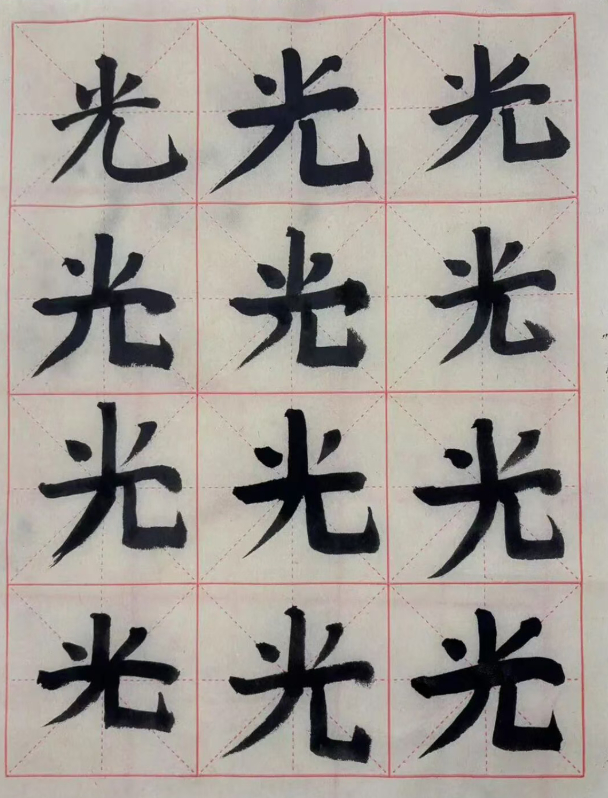 光光光
光光光
光光光
光光光